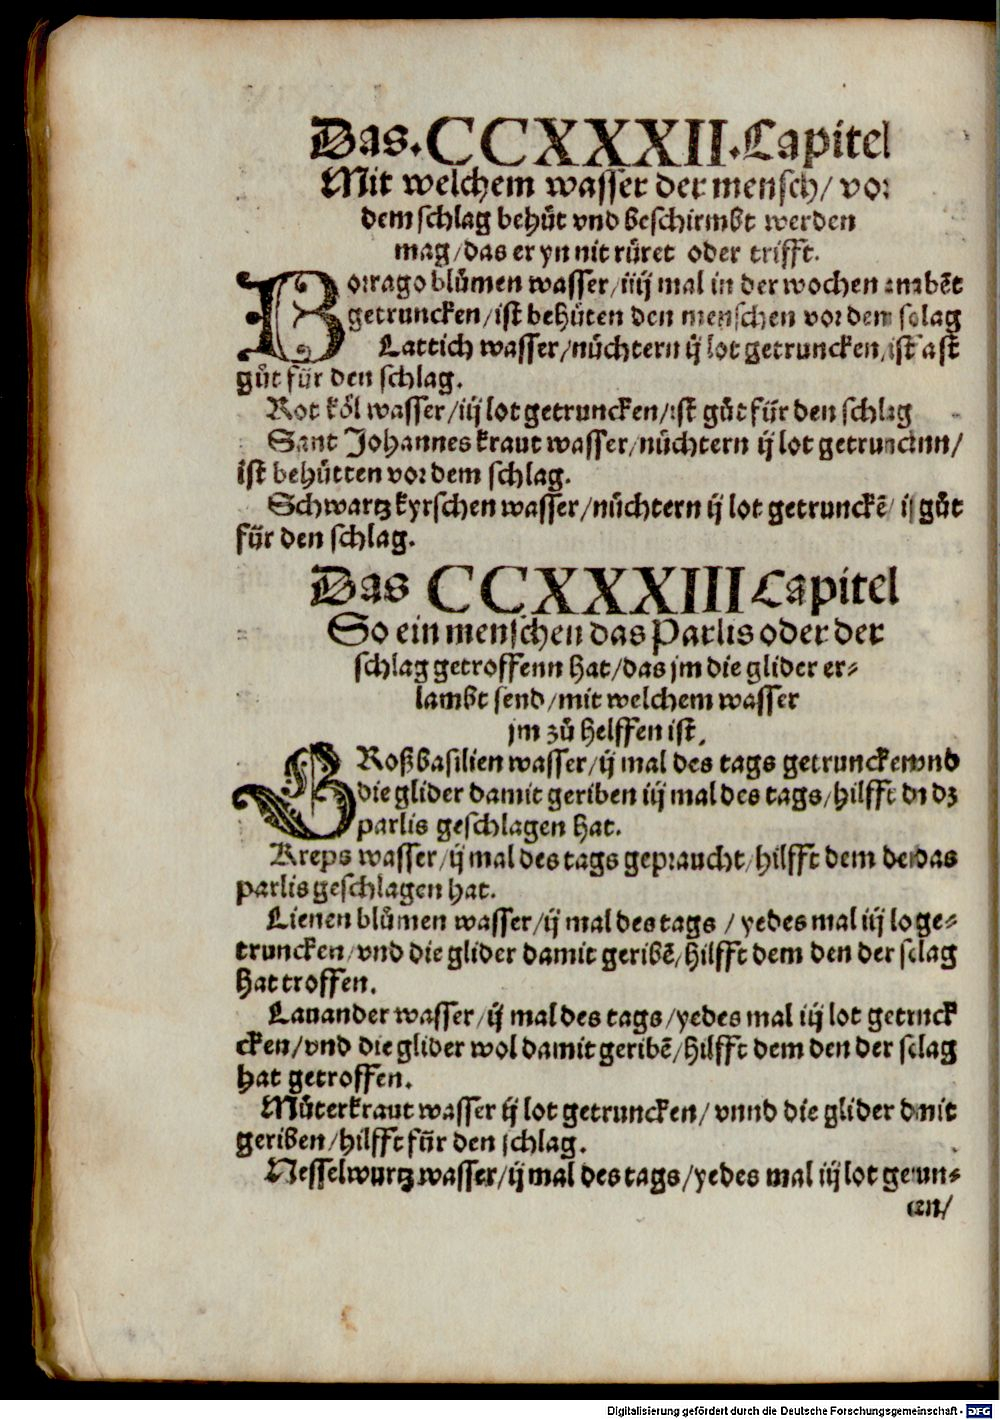 Das. CCXXXII. Capitel
Mit welchem wasser der mensch/ vor
dem schlag behůt vnd beschirmbt werden
mag/das er yn nit růret oder trifft.
Borrago blůmen wasser/iiij mal in der wochen
getruncken/ist behůten den menschen vor dem
Lattich wasser/nůchtern ij lot getruncken/ist fast
gůt für den schlag.
Rot köl wasser/iij lot getruncken/ist gůt für den schlag
Sant Johannes kraut wasser/nůchtern ij lot
ist behůtten vor dem schlag.
Schwartz kyrschen wasser/nůchtern ij lot getrunckē/ gůt
für den schlag.
Das CCXXXIII Capitel
So ein menschen das Parlis oder der
schlag getroffenn hat/das jm die glider er-
lambt send/mit welchem wasser
jm zů helffen ist.
GRoßbasilien wasser/ij mal des tags getruncken vnd
die glider damit geriben iij mal des tags/hilfft
parlis geschlagen hat.
Kreps wasser/ij mal des tags gepraucht/hilfft dem das
parlis geschlagen hat.
Lienen blůmen wasser/ij mal des tags / yedes mal iij ge-
truncken/vnd die glider damit geribē/hilfft dem den der
hat troffen.
Lauander wasser/ij mal des tags/yedes mal iij lot
cken/vnd die glider wol damit geribē/hilfft dem den der
hat getroffen.
Můterkraut wasser ij lot getruncken/ vnnd die glider
geriben/hilfft für den schlag.
Nesselwurtz wasser/ij mal des tags/yedes mal iij lot
Digitalisierung gefördert durch die Deutsche Forschungsgemeinschaft - DFG